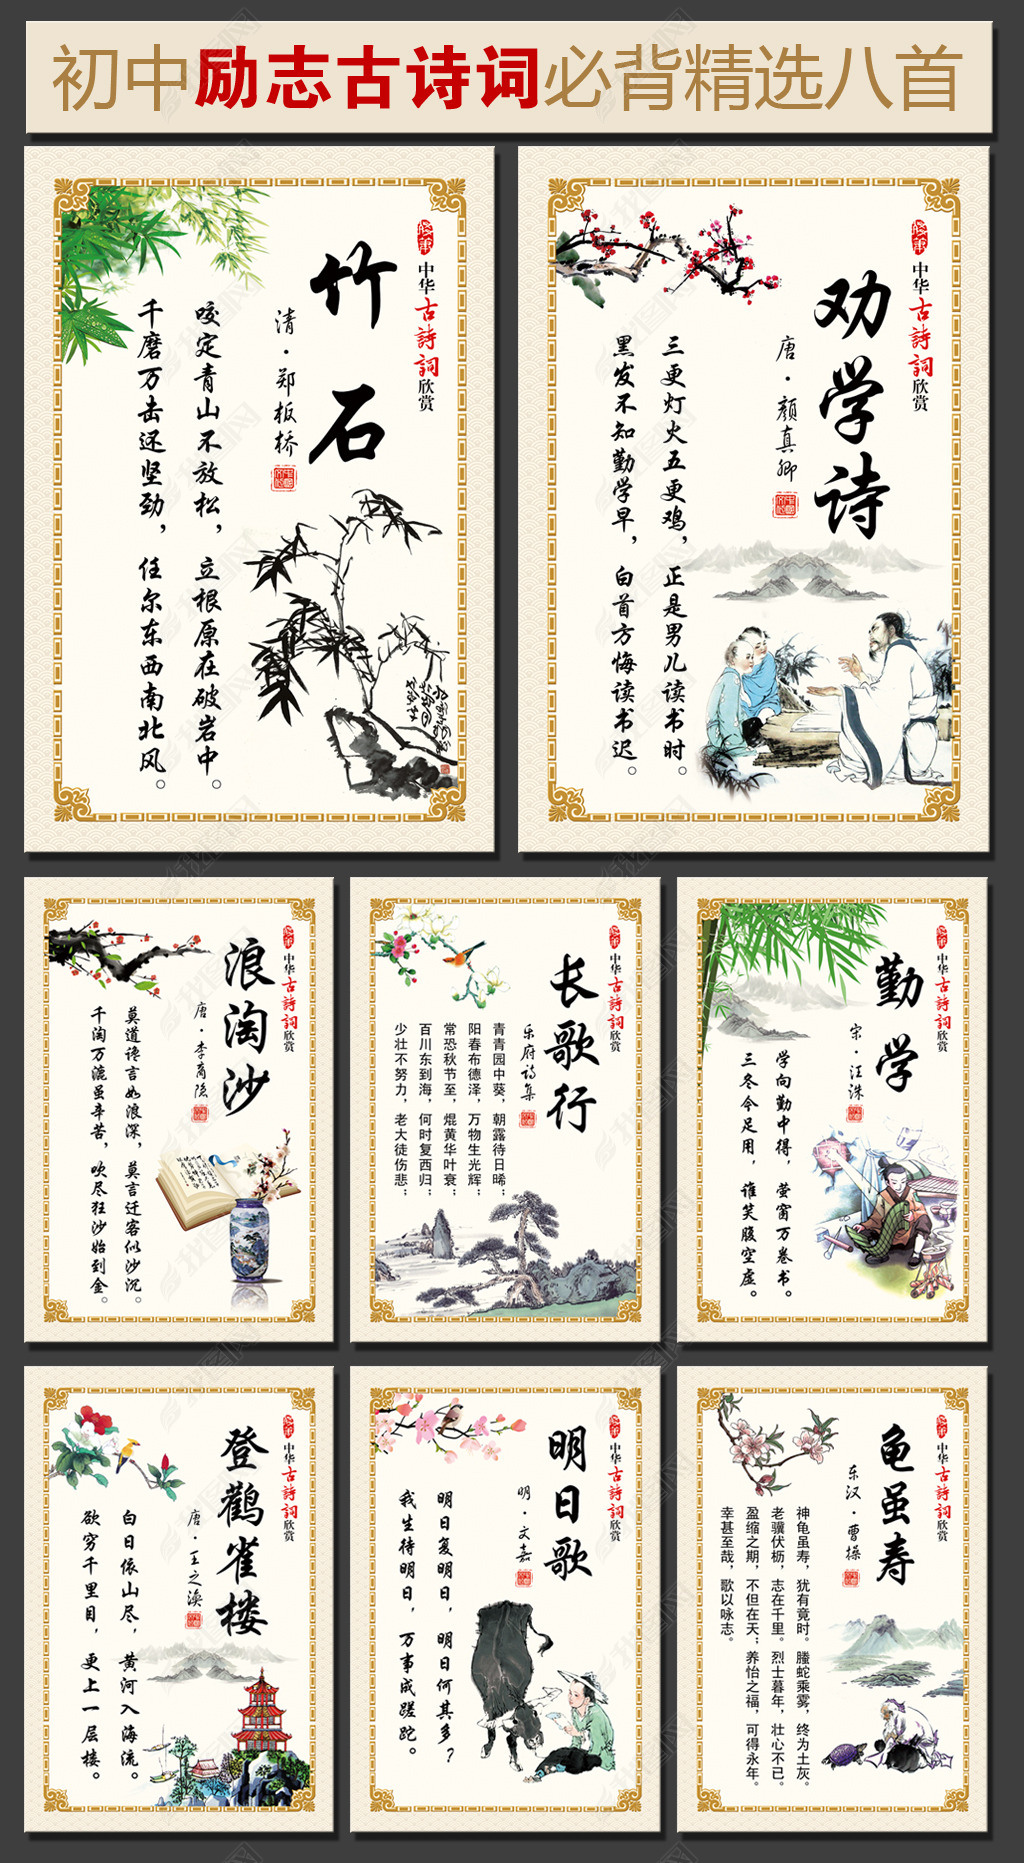 初中励志古诗词必背精选八首
中华古詩詞欣赏
竹石
清·郑板桥
咬定青山不放松，立根原在破岩中。
千磨万击还坚劲，任尔东西南北风。
中华古詩詞欣赏
劝学诗
唐·颜真卿
三更灯火五更鸡，正是男儿读书时。
黑发不知勤学早，白首方悔读书迟。
中华古詩詞欣赏
浪淘沙
唐·李商隐
莫道谗言如浪深，莫言迁客似沙沉。
千淘万漉虽辛苦，吹尽狂沙始到金。
中华古詩詞欣赏
长歌行
乐府诗集
青青园中葵，朝露待日晞；
阳春布德泽，万物生光辉；
常恐秋节至，焜黄华叶衰；
百川东到海，何时复西归；
少壮不努力，老大徒伤悲；
中华古詩詞欣赏
勤学
宋·汪洙
学向勤中得，萤窗万卷书。
三冬今足用，谁笑腹空虚。
中华古詩詞欣赏
登鹳雀楼
唐·王之涣
白日依山尽，黄河入海流。
欲穷千里目，更上一层楼。
中华古詩詞欣赏
明日歌
明·文嘉
明日复明日，明日何其多？
我生待明日，万事成蹉跎。
中华古詩詞欣赏
龟虽寿
东汉·曹操
神龟虽寿，犹有竟时。螣蛇乘雾，终为土灰。
老骥伏枥，志在千里。烈士暮年，壮心不已。
盈缩之期，不但在天；养怡之福，可得永年。
幸甚至哉，歌以咏志。